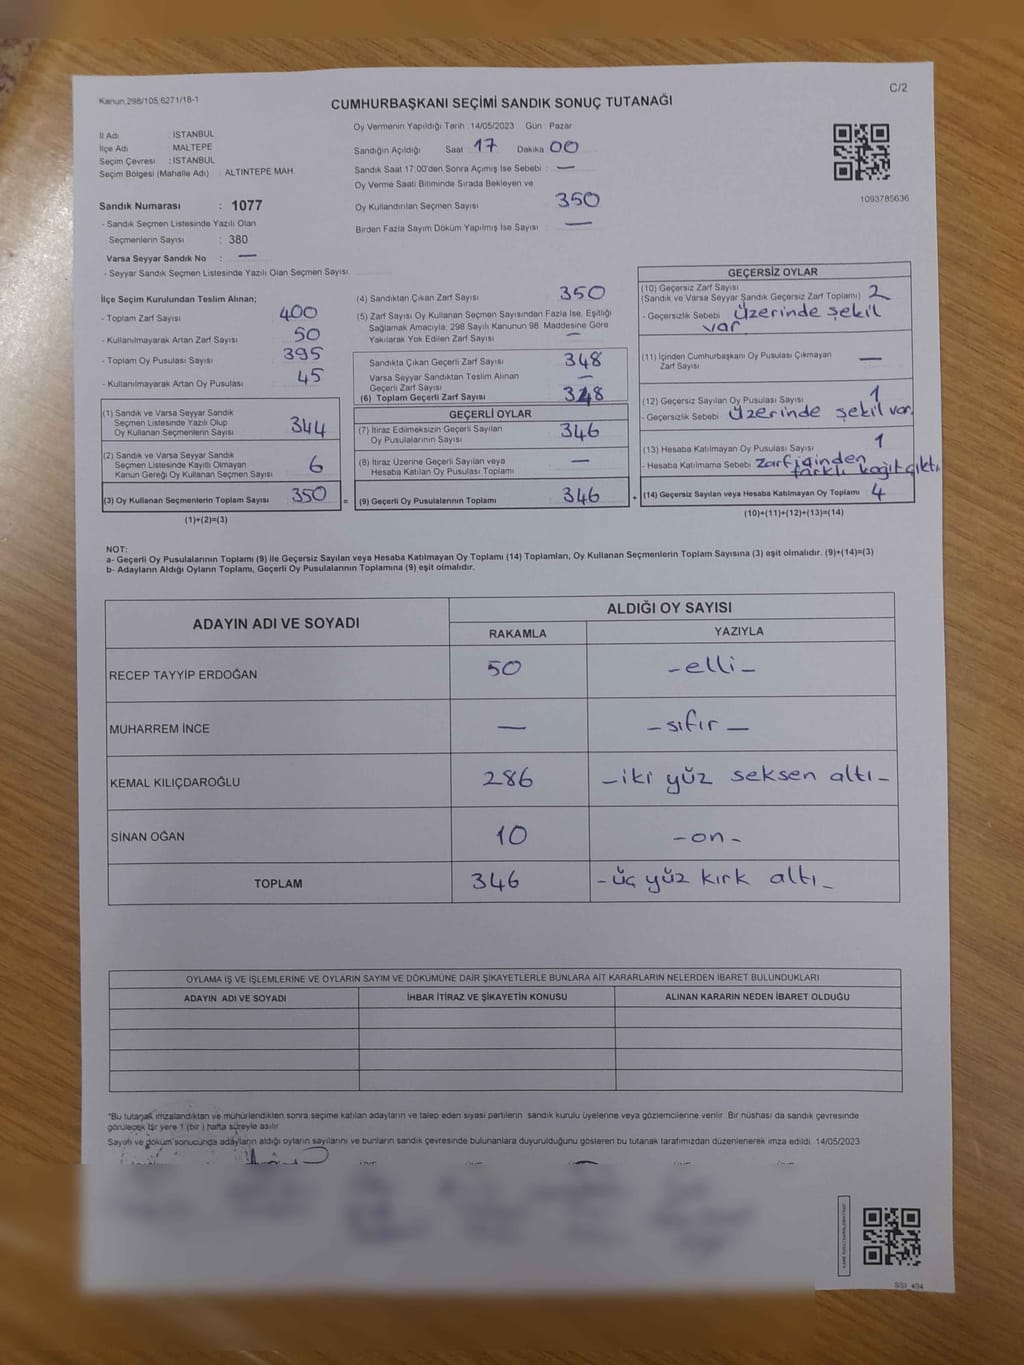 Kanun,298/105,6271/18-1
C/2
CUMHURBAŞKANI SEÇİMİ SANDIK SONUÇ TUTANAĞI
İl Adı : İSTANBUL
İlçe Adı : MALTEPE
Seçim Çevresi : İSTANBUL
Seçim Bölgesi (Mahalle Adı) : ALTINTEPE MAH.
Sandık Numarası : 1077
- Sandık Seçmen Listesinde Yazılı Olan
Seçmenlerin Sayısı : 380
Varsa Seyyar Sandık No : —
- Seyyar Sandık Seçmen Listesinde Yazılı Olan Seçmen Sayısı
Oy Vermenin Yapıldığı Tarih : 14/05/2023 Gün : Pazar
Sandığın Açıldığı Saat 17 Dakika 00
Sandık Saat 17:00'den Sonra Açımış İse Sebebi : —
Oy Verme Saati Bitiminde Sırada Bekleyen ve
Oy Kullandırılan Seçmen Sayısı 350
Birden Fazla Sayım Döküm Yapılmış İse Sayısı —
1093785636
İlçe Seçim Kurulundan Teslim Alınan;
- Toplam Zarf Sayısı 400
- Kullanılmayarak Artan Zarf Sayısı 50
- Toplam Oy Pusulası Sayısı 395
- Kullanılmayarak Artan Oy Pusulası 45
(1) Sandık ve Varsa Seyyar Sandık
Seçmen Listesinde Yazılı Olup
Oy Kullanan Seçmenlerin Sayısı 344
(2) Sandık ve Varsa Seyyar Sandık
Seçmen Listesinde Kayıtlı Olmayan
Kanun Gereği Oy Kullanan Seçmen Sayısı 6
(3) Oy Kullanan Seçmenlerin Toplam Sayısı 350 =
(1)+(2)=(3)
(4) Sandıktan Çıkan Zarf Sayısı 350
(5) Zarf Sayısı Oy Kullanan Seçmen Sayısından Fazla İse, Eşitliği
Sağlamak Amacıyla; 298 Sayılı Kanunun 98. Maddesine Göre
Yakılarak Yok Edilen Zarf Sayısı —
Sandıkta Çıkan Geçerli Zarf Sayısı 348
Varsa Seyyar Sandıktan Teslim Alınan
Geçerli Zarf Sayısı —
(6) Toplam Geçerli Zarf Sayısı 348
GEÇERLİ OYLAR
(7) İtiraz Edilmeksizin Geçerli Sayılan
Oy Pusulalarının Sayısı 346
(8) İtiraz Üzerine Geçerli Sayılan veya
Hesaba Katılan Oy Pusulası Toplamı —
(9) Geçerli Oy Pusulalarının Toplamı 346 +
GEÇERSİZ OYLAR
(10) Geçersiz Zarf Sayısı
(Sandık ve Varsa Seyyar Sandık Geçersiz Zarf Toplamı) 2
- Geçersizlik Sebebi Üzerinde şekil
var.
(11) İçinden Cumhurbaşkanı Oy Pusulası Çıkmayan
Zarf Sayısı —
(12) Geçersiz Sayılan Oy Pusulası Sayısı 1
- Geçersizlik Sebebi Üzerinde şekil var.
(13) Hesaba Katılmayan Oy Pusulası Sayısı 1
- Hesaba Katılmama Sebebi Zarf içinden
farklı kağıt çıktı
(14) Geçersiz Sayılan veya Hesaba Katılmayan Oy Toplamı 4
(10)+(11)+(12)+(13)=(14)
NOT:
a- Geçerli Oy Pusulalarının Toplamı (9) ile Geçersiz Sayılan veya Hesaba Katılmayan Oy Toplamı (14) Toplamları, Oy Kullanan Seçmenlerin Toplam Sayısına (3) eşit olmalıdır. (9)+(14)=(3)
b- Adayların Aldığı Oyların Toplamı, Geçerli Oy Pusulalarının Toplamına (9) eşit olmalıdır.
ADAYIN ADI VE SOYADI ALDIĞI OY SAYISI
RAKAMLA YAZIYLA
RECEP TAYYİP ERDOĞAN 50 -elli-
MUHARREM İNCE — -sıfır-
KEMAL KILIÇDAROĞLU 286 -iki yüz seksen altı-
SİNAN OĞAN 10 -on-
TOPLAM 346 -üç yüz kırk altı-
OYLAMA İŞ VE İŞLEMLERİNE VE OYLARIN SAYIM VE DÖKÜMÜNE DAİR ŞİKAYETLERLE BUNLARA AİT KARARLARIN NELERDEN İBARET BULUNDUKLARI
ADAYIN ADI VE SOYADI İHBAR İTİRAZ VE ŞİKAYETİN KONUSU ALINAN KARARIN NEDEN İBARET OLDUĞU
*Bu tutanak imzalandıktan ve mühürlendikten sonra seçime katılan adayların ve talep eden siyasi partilerin sandık kurulu üyelerine veya gözlemcilerine verilir. Bir nüshası da sandık çevresinde
görülecek bir yere 1 (bir) hafta süreyle asılır.
Sayım ve döküm sonucunda adayların aldığı oyların sayılarını ve bunların sandık çevresinde bulunanlara duyurulduğunu gösteren bu tutanak tarafımızdan düzenlenerek imza edildi. 14/05/2023